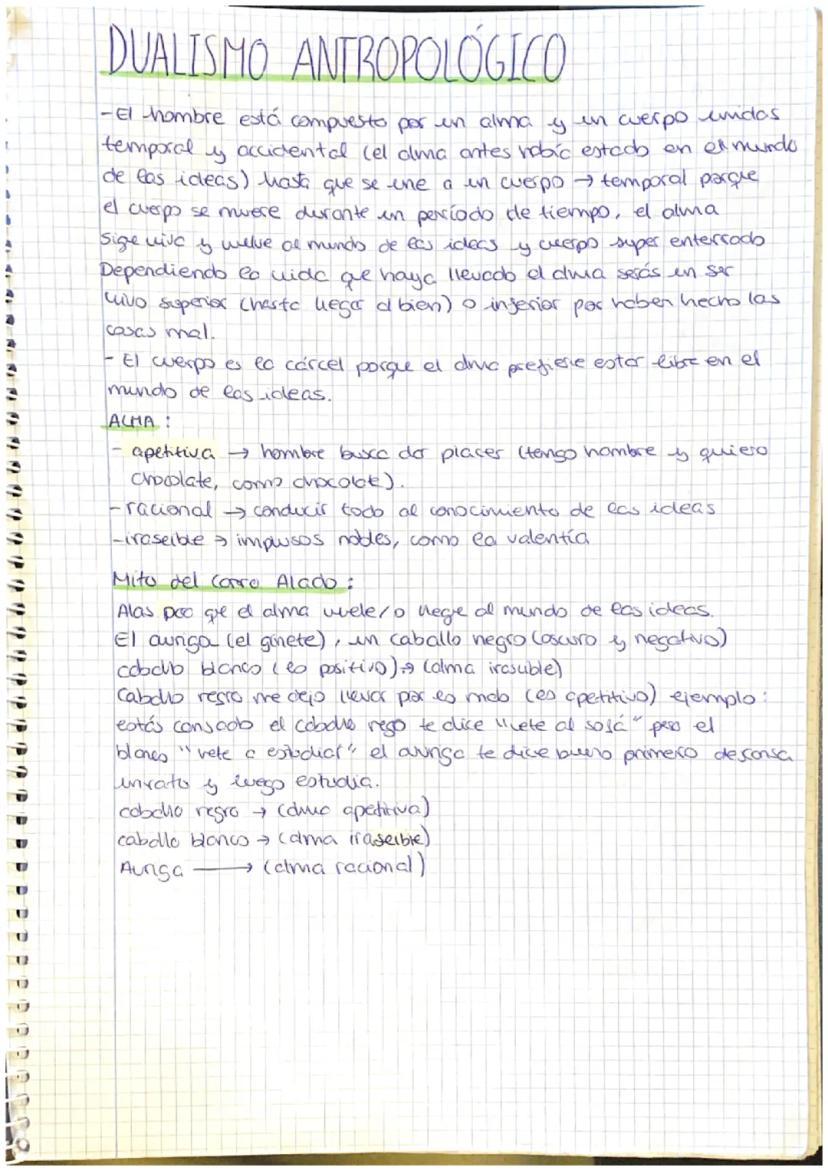 DUALISMO ANTROPOLÓGICO
-El hombre está compuesto por un alma y un cuerpo unidos
temporal y accidental (el alma antes había estado en el mundo
de las ideas) hasta que se une a un cuerpo → temporal porque
el cuerpo se muere durante un período de tiempo, el alma
sige viva y vuelve al mundo de las ideas y cuerpo super enterrado
Dependiendo la vida que haya llevado el alma serás un ser
vivo superior (hasta llegar al bien) o inferior por haber hecho las
cosas mal.
- El cuerpo es la cárcel porque el alma prefiere estar libre en el
mundo de las ideas.
ALMA :
- apetitiva → hombre busca dar placer (tengo hambre y quiero
chocolate, como chocolate).
-racional → conducir todo al conocimiento de las ideas
-irascible → impulsos nobles, como la valentía
Mito del Carro Alado :
Alas para que el alma vuele/o llege al mundo de las ideas.
El auriga (el ginete), un caballo negro (oscuro y negativo)
caballo blanco (lo positivo) → (alma irascible)
Caballo negro me dejo llevar por lo malo (es apetitivo) ejemplo :
estás cansado el caballo nego te dice "vete al sofá" pero el
blanco "vete a estudiar" el auriga te dice bueno primero descansa
un rato y luego estudia.
caballo negro → (alma apetitiva)
caballo blanco → (alma irascible)
Auriga → (alma racional)